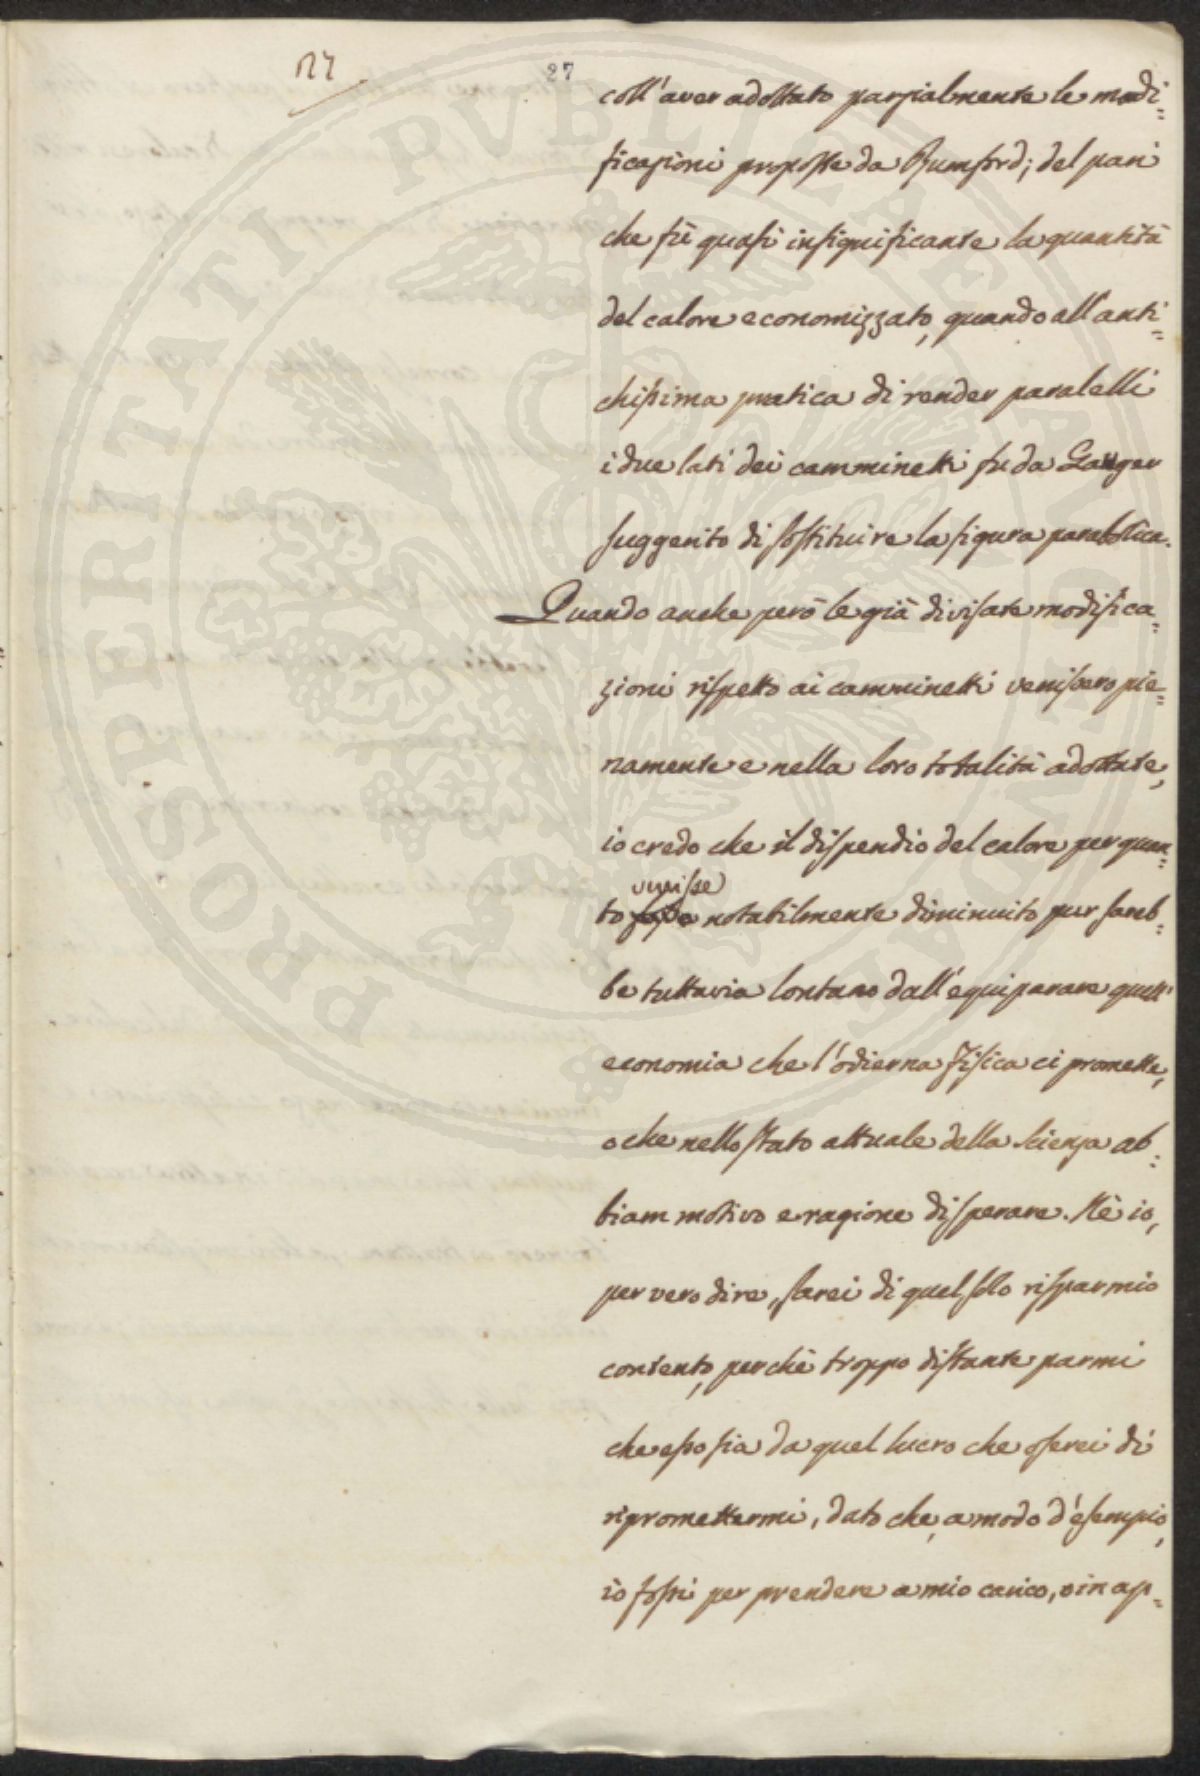 27
27
coll'aver adottato parzialmente le modi=
ficazioni proposte da Rumford; del pari
che fù quasi insignificante la quantità
del calore economizzato, quando all'anti=
chissima pratica di render paralelli
i due lati dei camminetti fu da Gauger
suggerito di sostituire la figura parabolica.
Quando anche però le già divisate modifica=
zioni rispetto ai camminetti venissero pie=
namente e nella loro totalità adottate,
io credo che il dispendio del calore per quan=
venisse
to notabilmente diminuito pur sareb=
be tuttavia lontano dall'equiparare quell'
economia che l'odierna Fisica ci promette,
o che nello stato attuale della scienza ab=
biam motivo e ragione di sperare. Nè io,
per vero dire, sarei di quel solo risparmio
contento, perchè troppo distante parmi
che esso sia da quel lucro che oserei di
ripromettermi, dato che, a modo d'esempio,
io fossi per prendere a mio carico, o in ap=
PROSPERITATI PVBLICAE AVGENDAE